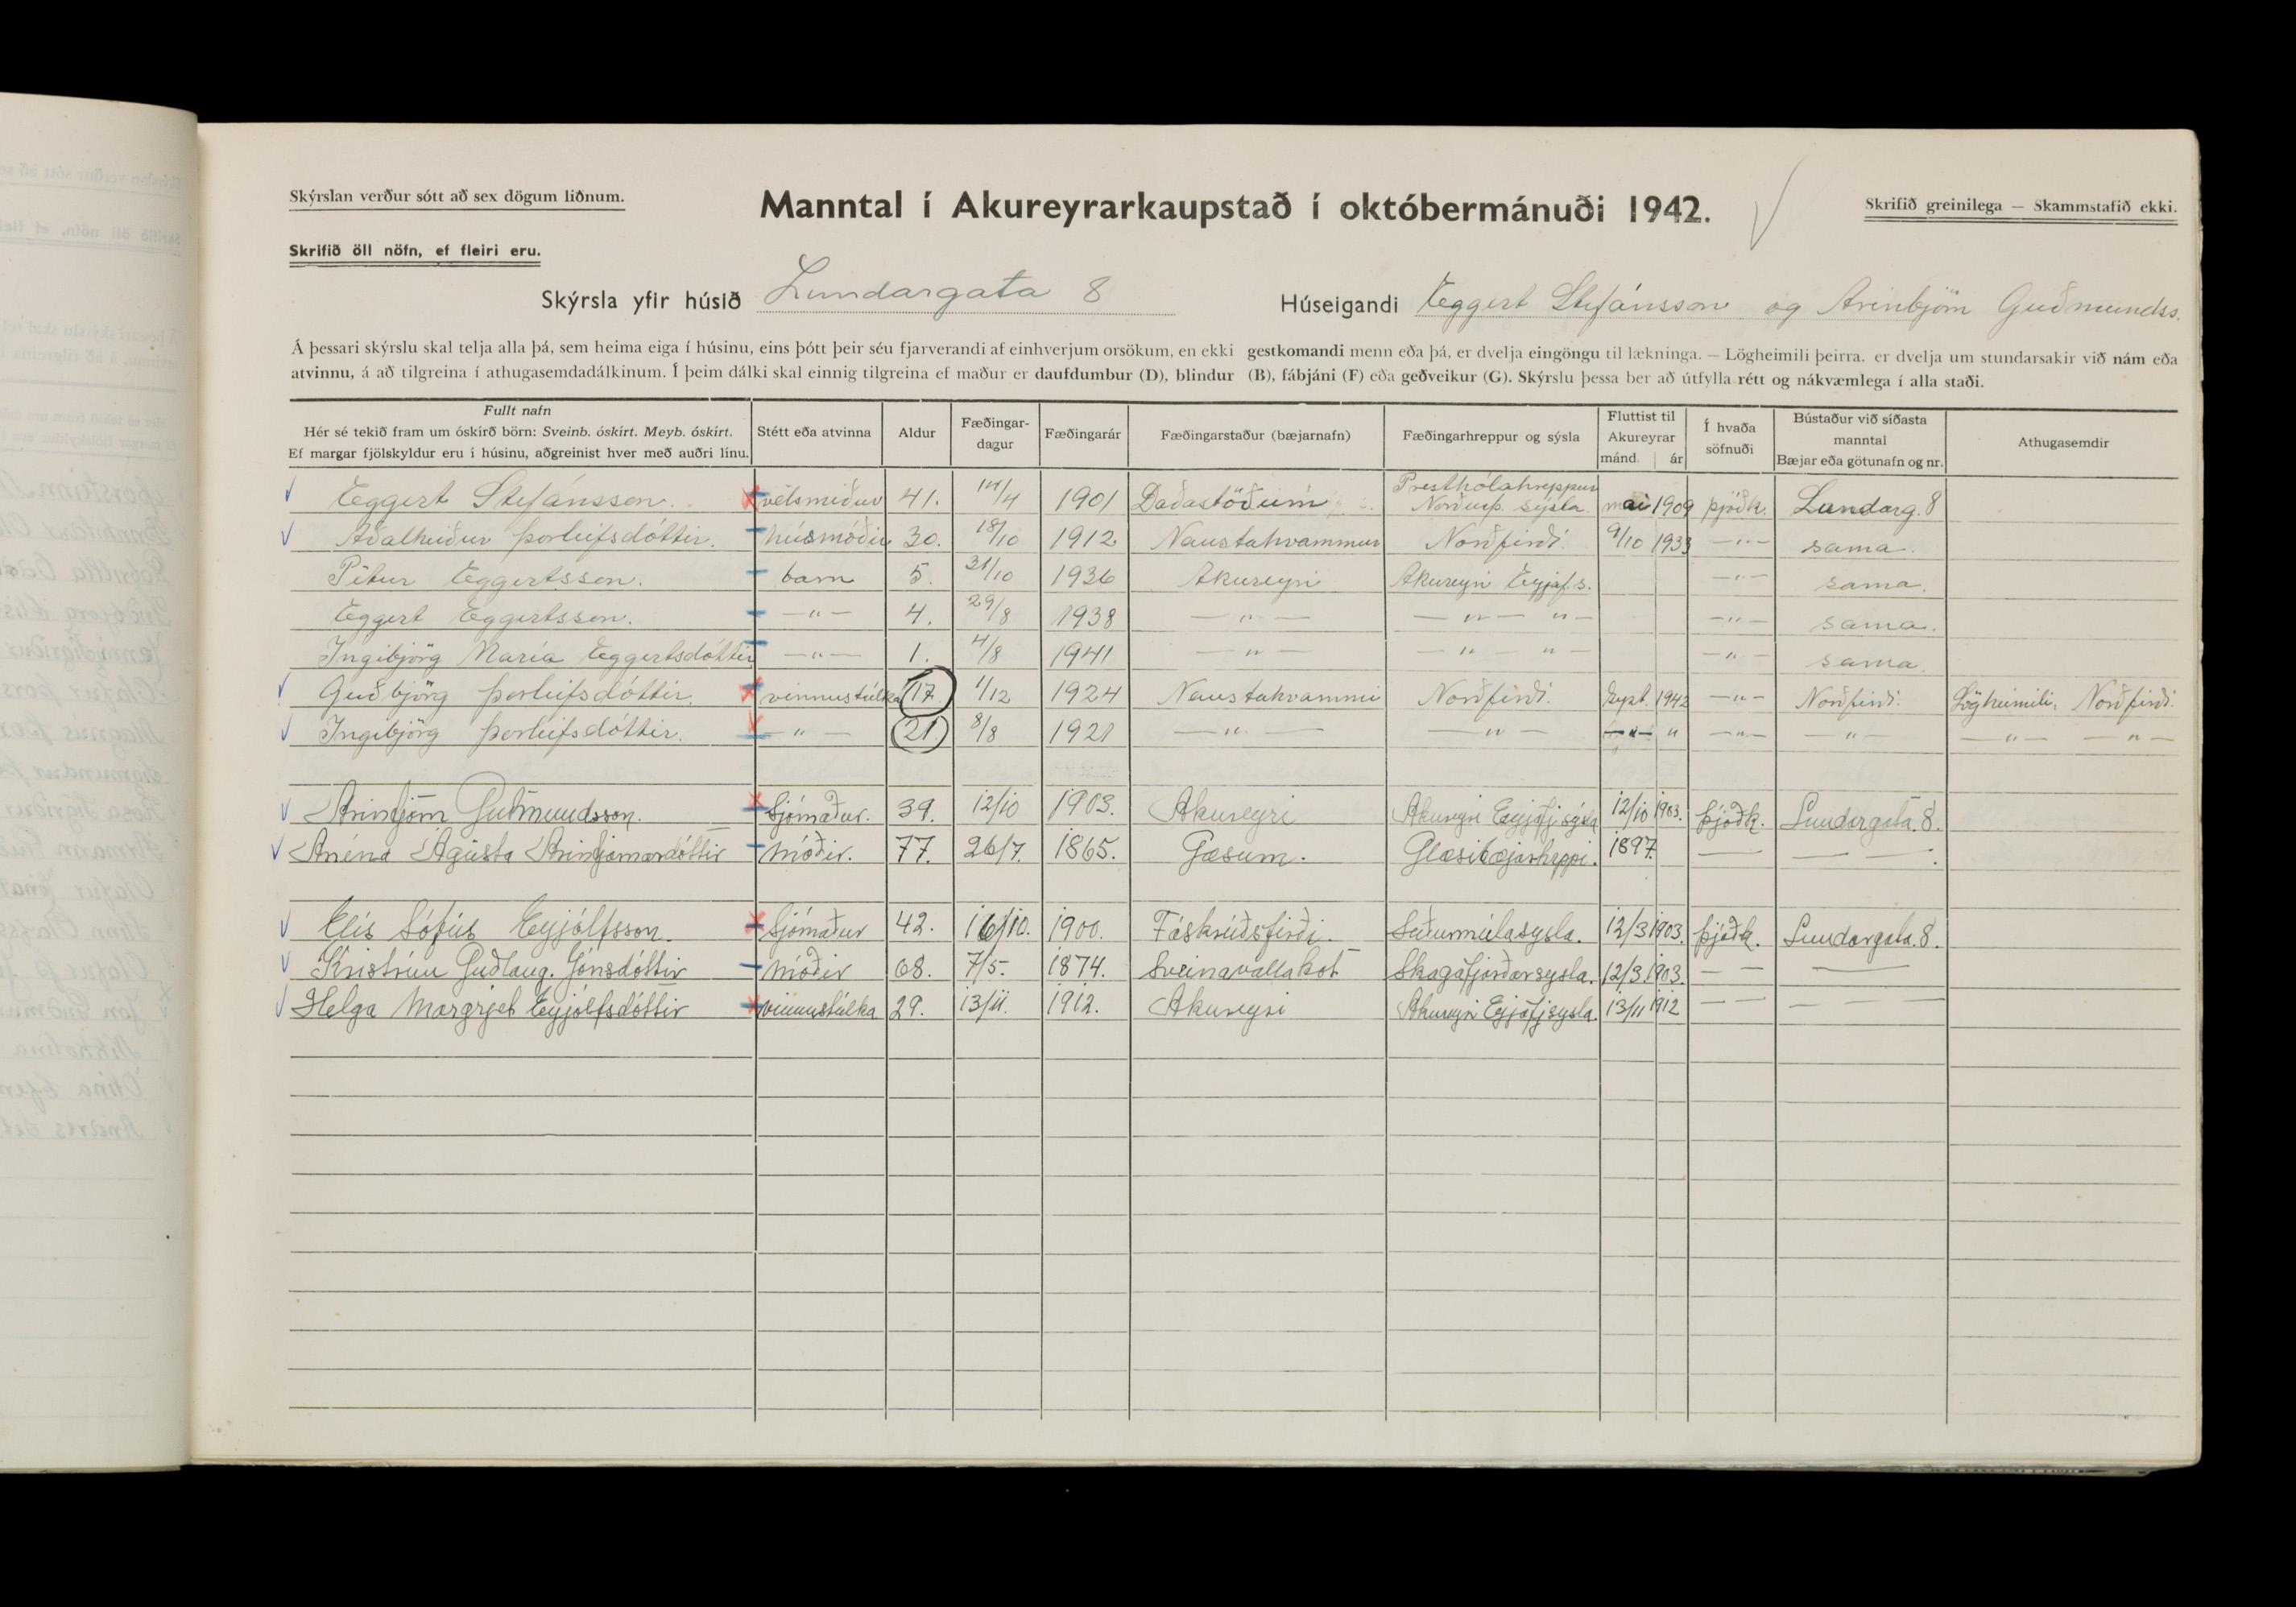 Skýrslan verður sótt að sex dögum liðnum.
Manntal í Akureyrarkaupstað í októbermánuði 1942.
Skrifið greinilega — Skammstafið ekki.
Skrifið öll nöfn, ef fleiri eru.
Skýrsla yfir húsið Lundargata 8 Húseigandi Eggert Stefánsson og Arinbjörn Guðmundss.
Á þessari skýrslu skal telja alla þá, sem heima eiga í húsinu, eins þótt þeir séu fjarverandi af einhverjum orsökum, en ekki gestkomandi menn eða þá, er dvelja eingöngu til lækninga. — Lögheimili þeirra, er dvelja um stundarsakir við nám eða
atvinnu, á að tilgreina í athugasemdadálkinum. Í þeim dálki skal einnig tilgreina ef maður er daufdumbur (D), blindur (B), fábjáni (F) eða geðveikur (G). Skýrslu þessa ber að útfylla rétt og nákvæmlega í alla staði.
Fullt nafn
Hér sé tekið fram um óskírð börn: Sveinb. óskírt. Meyb. óskírt.
Ef margar fjölskyldur eru í húsinu, aðgreinist hver með auðri línu.
Stétt eða atvinna
Aldur
Fæðingar-
dagur
Fæðingarár
Fæðingarstaður (bæjarnafn)
Fæðingarhreppur og sýsla
Fluttist til
Akureyrar
mánd. ár
Í hvaða
söfnuði
Bústaður við síðasta
manntal
Bæjar eða götunafn og nr.
Athugasemdir
Eggert Stefánsson. vélsmiður 41. 14/4 1901 Daðastöðum Presthólahreppur Norðurþ. sýsla. mai 1909 þjóðk. Lundarg. 8
Aðalheiður Þorleifsdóttir. húsmóðir 30. 18/10 1912 Naustahvammur Norðfirði. 9/10 1933 —"— sama.
Pétur Eggertsson. barn 5. 31/10 1936 Akureyri Akureyri Eyjaf.s. —"— sama.
Eggert Eggertsson. —"— 4. 29/8 1938 —"— —"— "— —"— sama.
Ingibjörg María Eggertsdóttir —"— 1. 4/8 1941 —"— —"— "— —"— sama.
Guðbjörg Þorleifsdóttir. vinnustúlka 17 1/12 1924 Naustahvammi Norðfirði. Sept. 1942 —"— Norðfirði. Lögheimili, Norðfirði.
Ingibjörg Þorleifsdóttir. —"— 21 8/8 1921 —"— —"— —"— " —"— —"— —"— —"—
Arinbjörn Guðmundsson. Sjómaður. 39. 12/10 1903. Akureyri Akureyri Eyjafj.sýsla 12/10 1903. þjóðk. Lundargata. 8.
Anena Ágústa Arinbjarnardóttir móðir. 77. 26/7. 1865. Gæsum. Glæsibæjarhreppi. 1897. — — —
Elís Sófús Eyjólfsson. Sjómaður 42. 16/10. 1900. Fáskrúðsfirði. Suðurmúlasýsla. 12/3 1903. þjóðk. Lundargata. 8.
Kristrún Guðlaug. Jónsdóttir móðir 68. 7/5. 1874. Sveinavallakot Skagafjorðarsysla. 12/3. 1903. — — —
Helga Margrjet Eyjólfsdóttir vinnustúlka 29. 13/11. 1912. Akureyri Akureyri Eyjafj.sysla. 13/11 1912 — — — — —